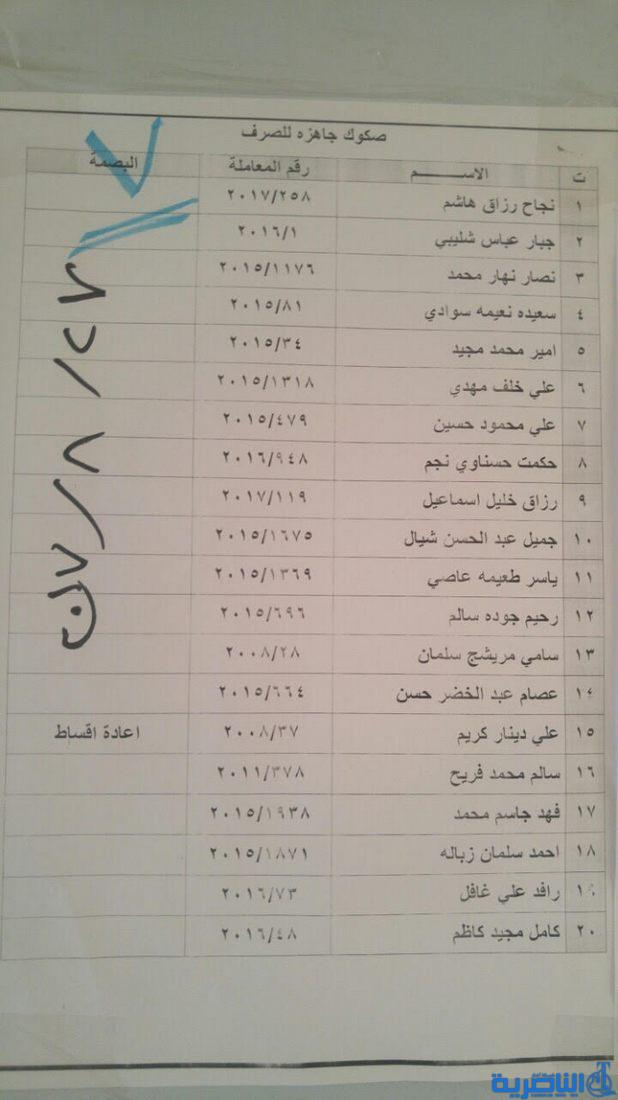 صكوك جاهزه للصرف
ت الاســـــم رقم المعاملة البصمة
١ نجاح رزاق هاشم ٢٠١٧/٢٥٨
٢ جبار عباس شليبي ٢٠١٦/١
٣ نصار نهار محمد ٢٠١٥/١١٧٦
٤ سعيده نعيمه سوادي ٢٠١٥/٨١
٥ امير محمد مجيد ٢٠١٥/٣٤
٦ علي خلف مهدي ٢٠١٥/١٣١٨
٧ علي محمود حسين ٢٠١٥/٤٧٩
٨ حكمت حسناوي نجم ٢٠١٦/٩٤٨
٩ رزاق خليل اسماعيل ٢٠١٧/١١٩
١٠ جميل عبد الحسن شيال ٢٠١٥/١٦٧٥
١١ ياسر طعيمه عاصي ٢٠١٥/١٣٦٩
١٢ رحيم جوده سالم ٢٠١٥/٦٩٦
١٣ سامي مريشج سلمان ٢٠٠٨/٢٨
١٤ عصام عبد الخضر حسن ٢٠١٥/٦٦٤
١٥ علي دينار كريم ٢٠٠٨/٣٧ اعادة اقساط
١٦ سالم محمد فريح ٢٠١١/٣٧٨
١٧ فهد جاسم محمد ٢٠١٥/١٩٣٨
١٨ احمد سلمان زباله ٢٠١٥/١٨٧١
١٩ رافد علي غافل ٢٠١٦/٧٣
٢٠ كامل مجيد كاظم ٢٠١٦/٤٨
الناصرية